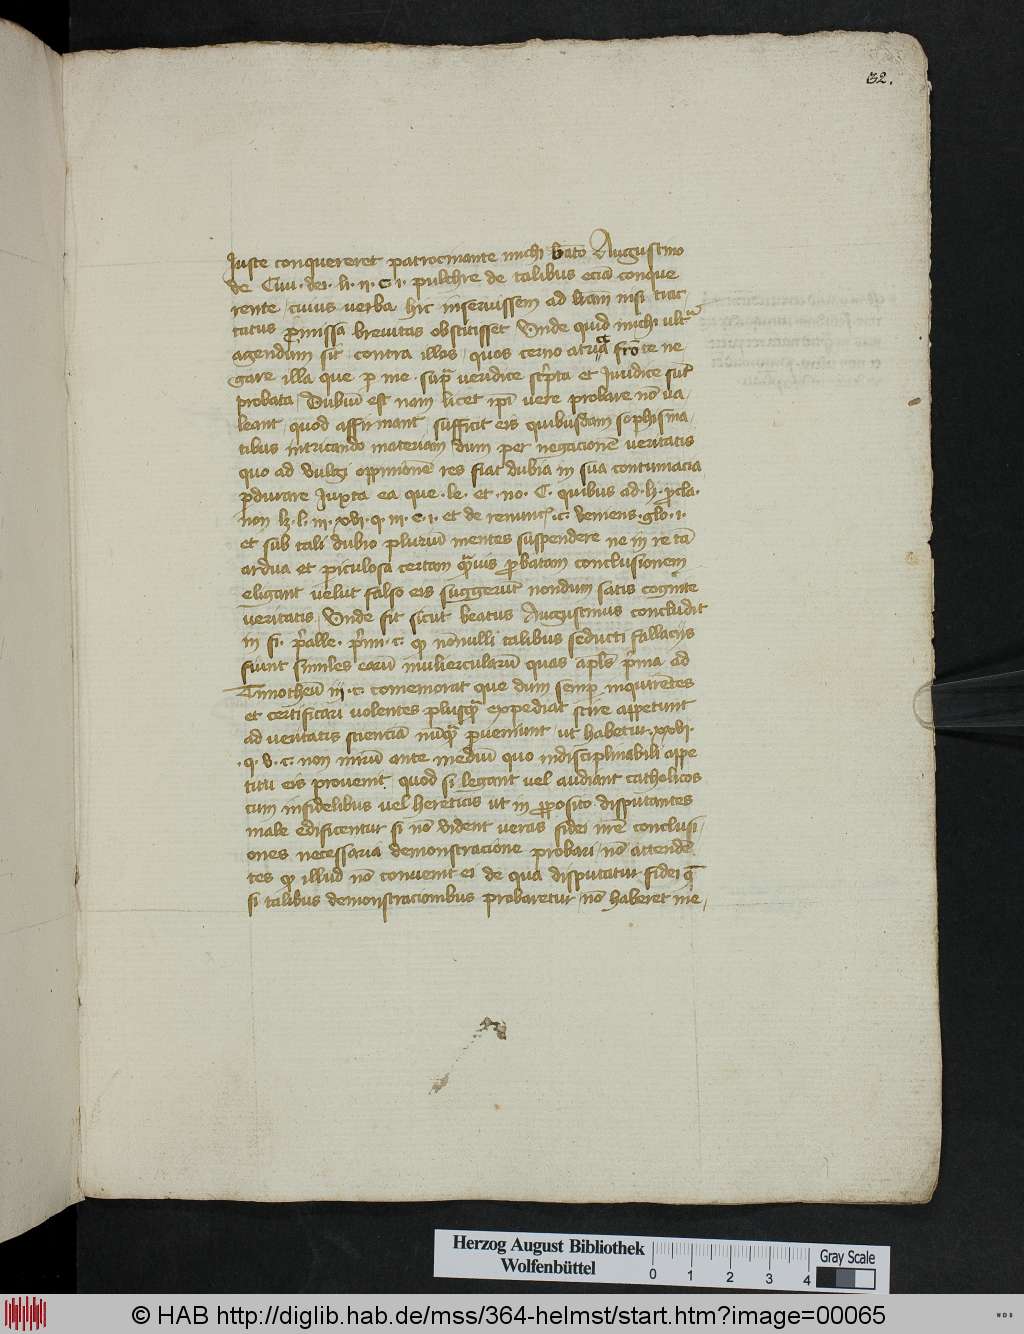 32.
Iuste conquereret patrocinante michi bͣto Augustino
de Ciui. dei. li. ii. c. i. pulchre de talibus eciā conque
rente, cuius verba hic inseruissem ad lrām nisi trac-
tatus p̄missa breuitas obstitisset Vnde quid michi vlt͛ius
agendum sit contra illos, quos cerno fronte ne
gare illa que p me sup̄ veridice scͥpta et Iuridice sūt
probata, Dubiū est nam licet ip̄i vere probare nō va-
leant, quod affirmant, sufficit eis quibusdam sophisma-
tibus intricando materiam dum per negacionē veritatis
quo ad vulgi oppinionē res fiat dubia in sua contumacia
pdurare Iuxta ea que .le. et .no. C. quibus ad
non lꝫ. l. iii. xvi. q. iii. c. i. et de renunc̄. c. veniens. glo. i.
et sub tali dubio pluriū mentes suspendere ne in re tā
ardua et piculosa certam qͣuis pbatam conclusionem
eligant velut falso eis suggerūt nondum satis cognite
veritatis, Vnde fit sicut beatus Augustinus concludit
in c. nōnulli talibus seducti fallacijs
fiunt similes earū muliercularū quas apl̄s pͥma ad
Timotheū iij. c. comemorat que dum semp inquirētes
et certificari volentes plusqͣ expediat scire appetunt
ad veritatis scienciā nūqͣ pueniunt vt habetur. xxvi.
.q. v. c. non mirū ante mediū quo indisciplinabili appe
titu eis prouenit. quod si legant vel audiant catholicos
cum infidelibus vel hereticis vt in pposito disputantes
male edificentur si nō vident veras fidei nr̄e conclusi-
ones necessaria demonstracione probari, nō attendē
tes ꝙ illud nō conuenit ei de qua disputatur fidei q̄
si talibus demonstracionibus probaretur, nō haberet me-
Herzog August Bibliothek
Wolfenbüttel
0 1 2 3 4
Gray Scale
© HAB http://diglib.hab.de/mss/364-helmst/start.htm?image=00065